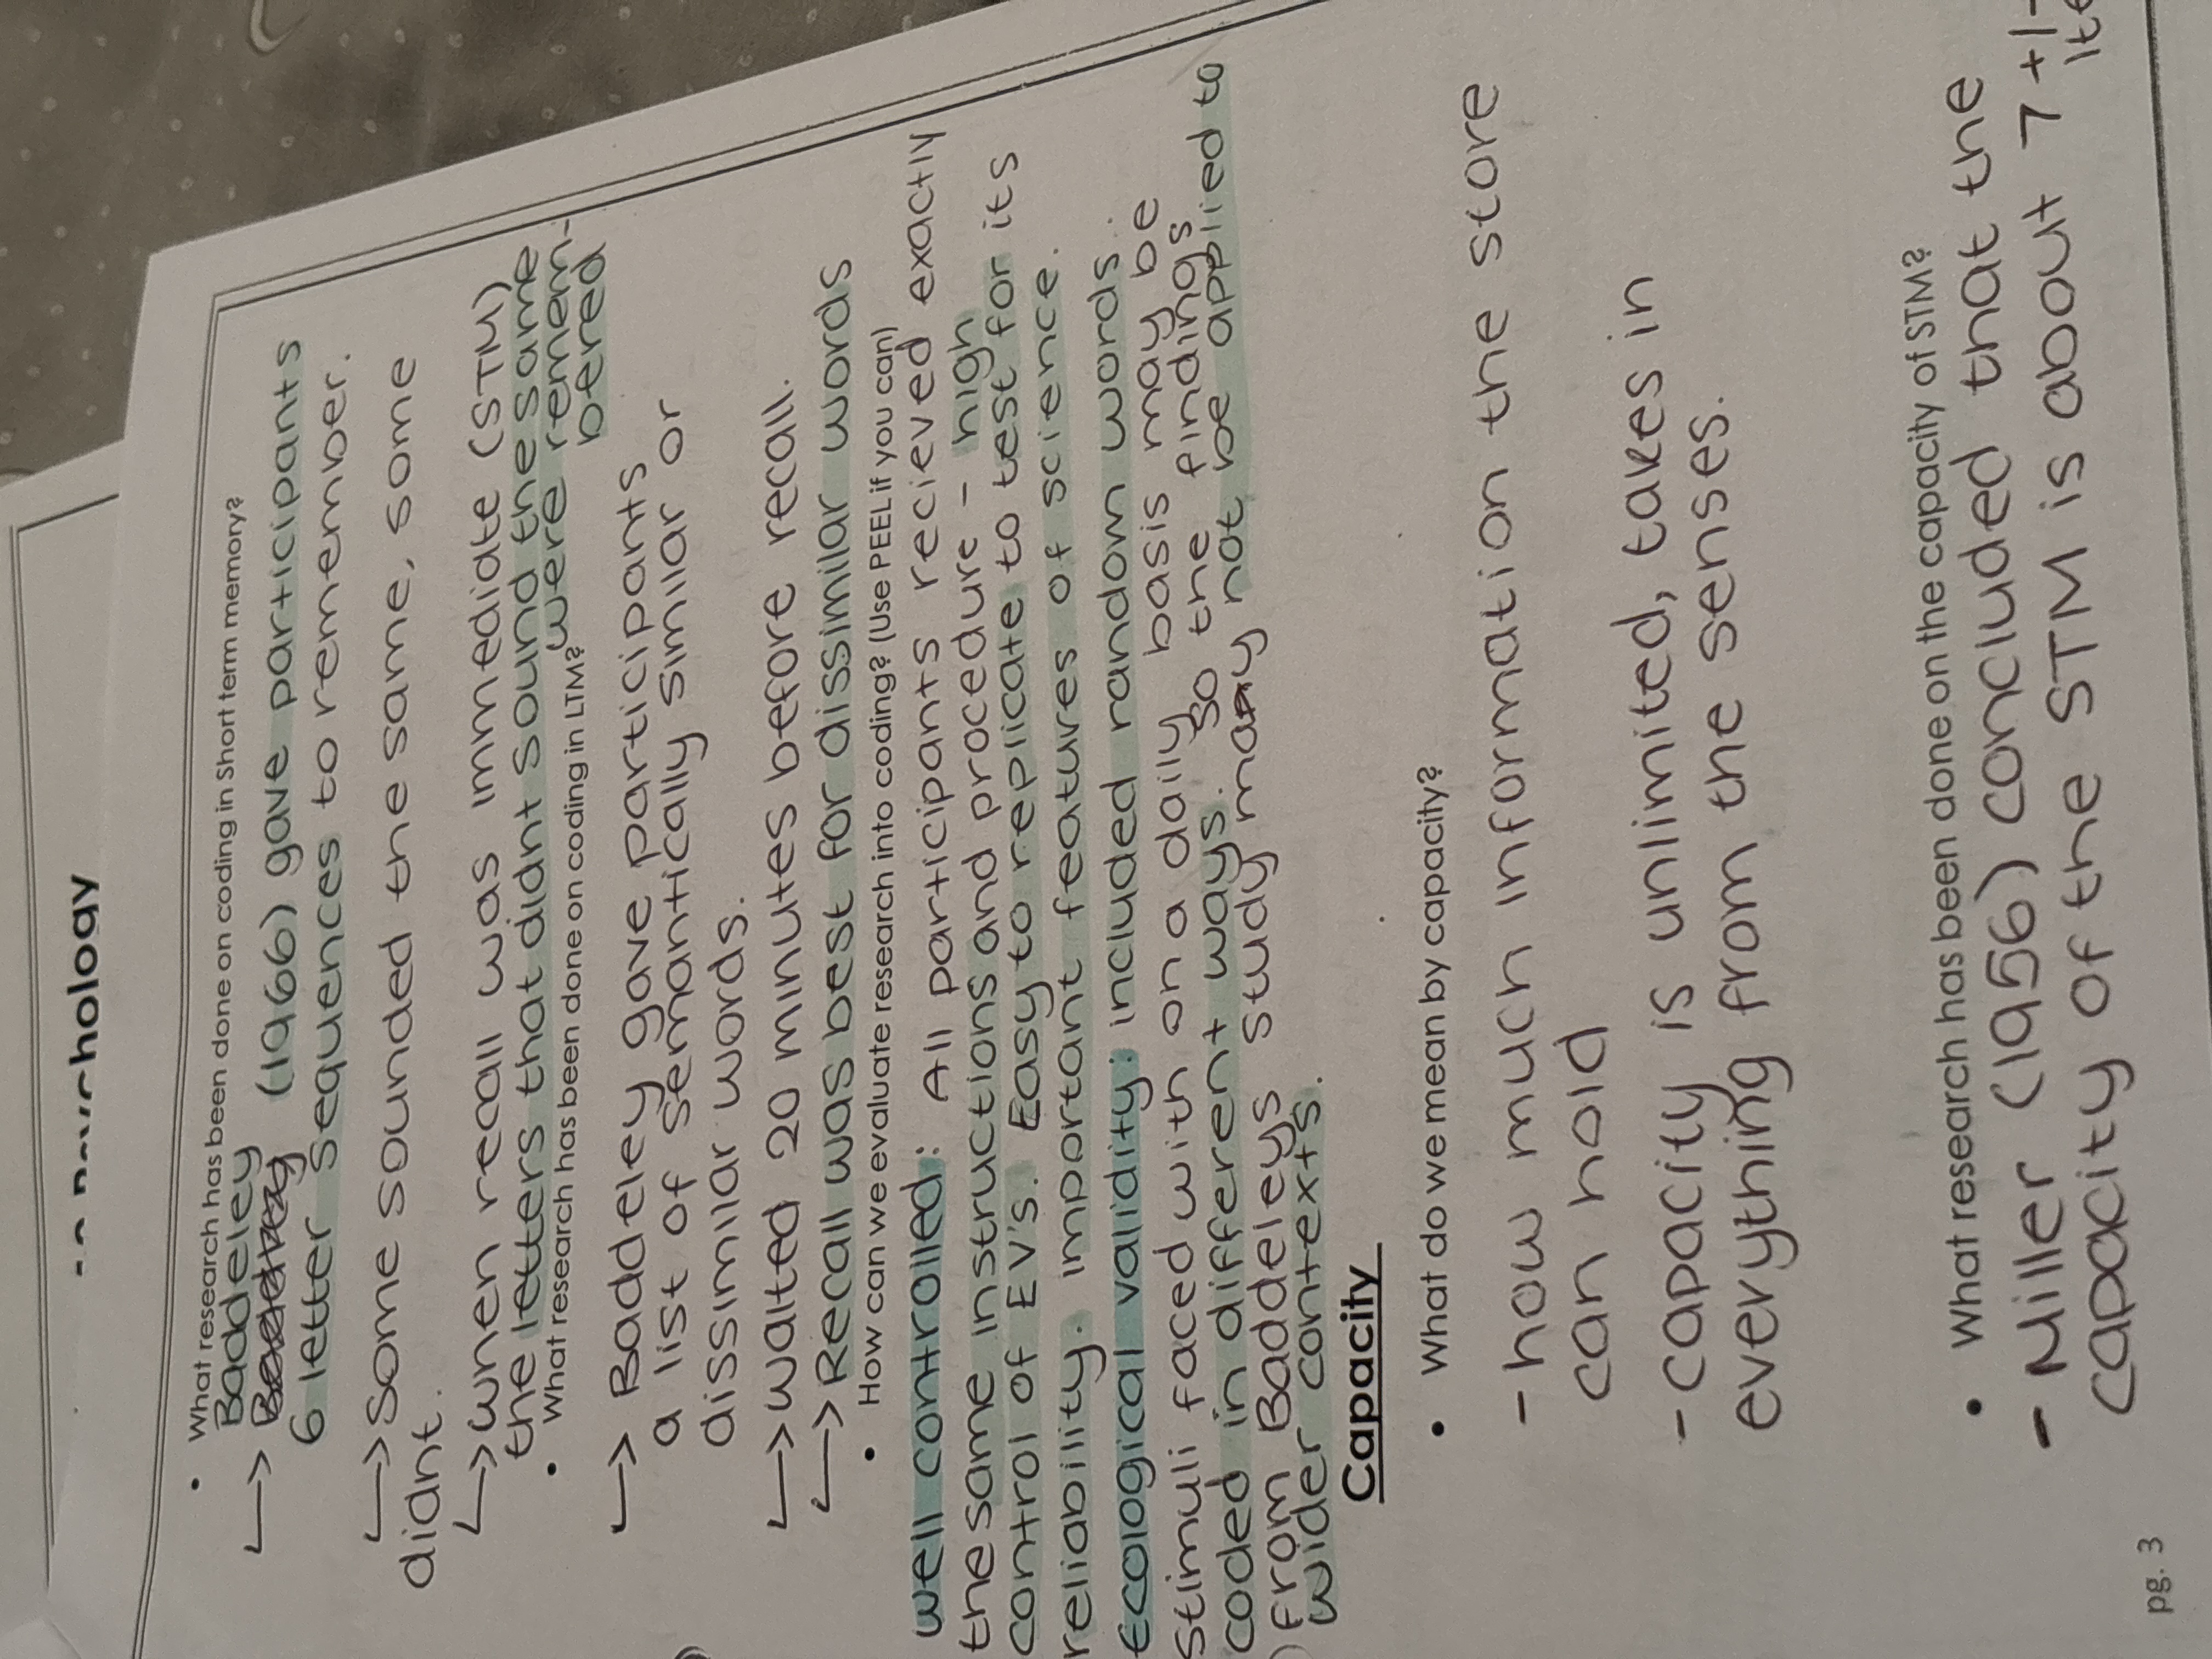 Psychology
• What research has been done on coding in Short term memory?
Baddeley
→ (1966) gave participants
6 letter sequences to remember.
→ some sounded the same, some
didnt.
→ when recall was immediate (STM)
the letters that didnt sound the same
were remem-
bered
• What research has been done on coding in LTM?
→ Baddeley gave participants
a list of semantically similar or
dissimilar words.
→ waited 20 minutes before recall.
→ Recall was best for dissimilar words
• How can we evaluate research into coding? (Use PEEL if you can)
well controlled: All participants recieved exactly
the same instructions and procedure - high
control of EV's. Easy to replicate to test for its
reliability. important features of science.
Ecological validity: included random words.
Stimuli faced with on a daily basis may be
coded in different ways. So the findings
from Baddeleys study may not be applied to
wider contexts.
Capacity
• What do we mean by capacity?
- how much information the store
can hold
- capacity is unlimited, takes in
everything from the senses.
• What research has been done on the capacity of STM?
- Miller (1956) concluded that the
capacity of the STM is about 7 +/-
ite
pg. 3